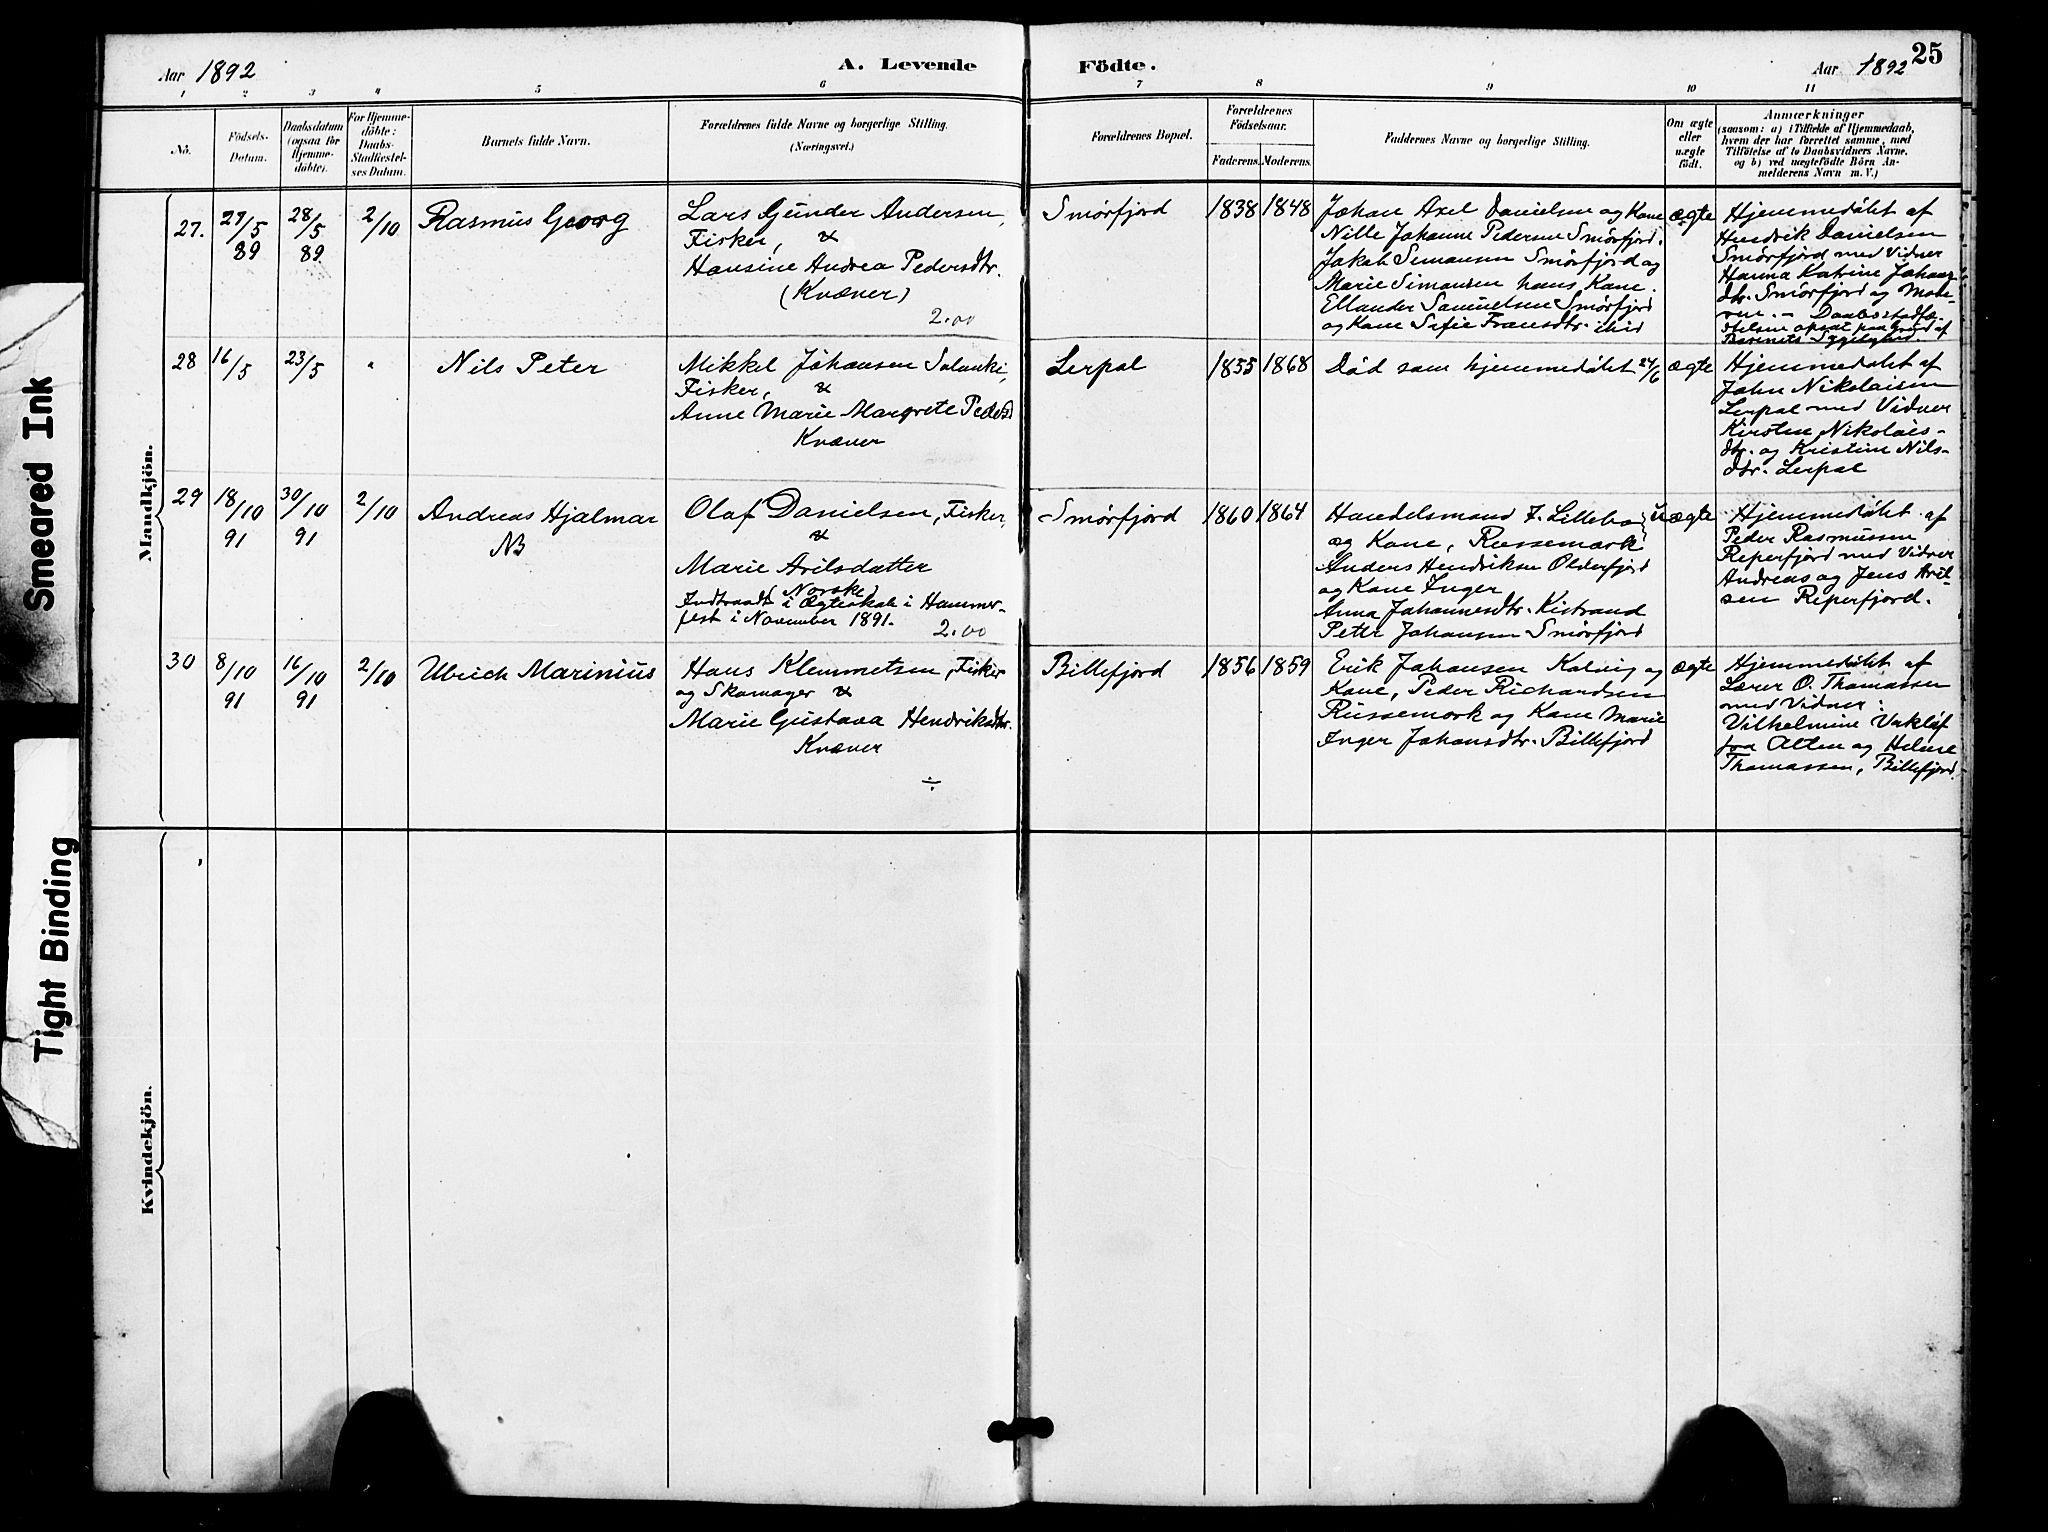 Smeared Ink
Tight Binding
25
Aar 1892
A. Levende Födte.
Aar 1892
1 2 3 4 5 6 7 8 8 9 10 11
No.
Födsels-
Datum.
Daabsdatum
(ogsaa for
Hjemme-
döbte).
For Hjemme-
döbte:
Daabs-
Stadfæstel-
ses Datum.
Barnets fulde Navn.
Forældrenes fulde Navne og borgerlige Stilling.
(Næringsvei.)
Forældrenes Bopæl.
Forældrenes
Födselsaar.
Faderens. Moderens.
Faddernes Navne og borgerlige Stilling.
Om ægte
eller
uægte
födt.
Anmærkninger
(saasom: a) i Tilfælde af Hjemmedaab,
hvem der har forrettet samme, med
Tilföielse af to Daabsvidners Navne.
og b) ved uægtefödte Börn An-
melderens Navn m. V.)
Mandkjön.
27.
27/5
89
28/5
89
2/10
Rasmus Georg
Lars Gunder Andersen,
Fisker, &
Hansine Andrea Pedersdtr.
(Kvæner)
2.00
Smørfjord
1838
1848
Johan Axel Danielsen og Kone
Nille Johanne Pedersen Smørfjord.
Jakob Simonsen Smørfjord og
Marie Simonsen hans Kone.
Ellander Samuelsen Smørfjord
og Kone Sofie Fransdtr. ibid
ægte
Hjemmedøbt af
Hendrik Danielsen
Smørfjord med Vidner
Hanna Katrine Johans-
dtr. Smørfjord og Mode-
ren. - Daabsstadfæ-
stelsen opsat paa Grund af
Barnets Sygelighed.
28
16/5
23/5
"
Nils Peter
Mikkel Johansen Salanki,
Fisker, &
Anne Marie Margrete Pedersd
Kvæner
Lerpol
1855
1868
Død som hjemmedøbt 24/6
ægte
Hjemmedøbt af
John Nikolaisen
Lerpol med Vidner
Kirsten Nikolais-
dtr. og Kristine Nils-
dtr. Lerpol
29
18/10
91
30/10
91
2/10
Andreas Hjalmar
NB
Olaf Danielsen, Fisker,
&
Marie Arilsdatter
(Norske)
Indtraadt i Ægteskab i Hammer-
fest i November 1891.
2.00
Smørfjord
1860
1864
Handelsmand F. Lillebo
og Kone, Russemark
Anders Hendriksen Olderfjord
og Kone Inger
Anna Johannesdtr. Kistrand
Peter Johansen Smørfjord
uægte
Hjemmedøbt af
Peder Rasmussen
Reperfjord med Vidner
Andreas og Jens Aril-
sen Reperfjord.
30
8/10
91
16/10
91
2/10
Ulrich Marinius
Hans Klemmetsen, Fisker
og Skomager &
Marie Gustava Hendriksdtr.
Kvæner
÷
Billefjord
1856
1859
Erik Johansen Kolvig og
Kone, Peder Richardsen
Russemark og Kone Marie
Inger Johansdtr. Billefjord
ægte
Hjemmedøbt af
Lærer O. Thomassen
med Vidner:
Vilhelmine
fra Alten og Helene
Thomassen, Billefjord.
Kvindekjön.